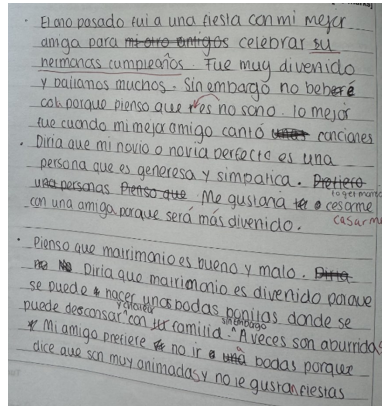 · El ano pasado fui a una fiesta con mi mejor
amiga para mi otro amigos celebrar su
hermanas cumpleaños. Fue muy divenido
y bailamos muchos. Sin embargo no beberé
porque pienso que es no sano. lo mejor
fue cuando mi mejor amigo cantó canciones
· Diria que mi novio o novia perfecto es una
persona que es generesa y simpatica. Prefiero
personas Pienso que Me gustaria o cesarme
con una amiga porque será más divenido. casarm
· Pienso que matrimonio es bueno y malo. Diria
No Diria que matrimonio es divenido porque
se puede hacer unas bodas bonitas donde se
puede desconsar y con tu familia. sin embargo A veces son aburridas
Mi amigo prefiere no ir a una bodas porque
dice que son muy animadas y no le gustan fiestas